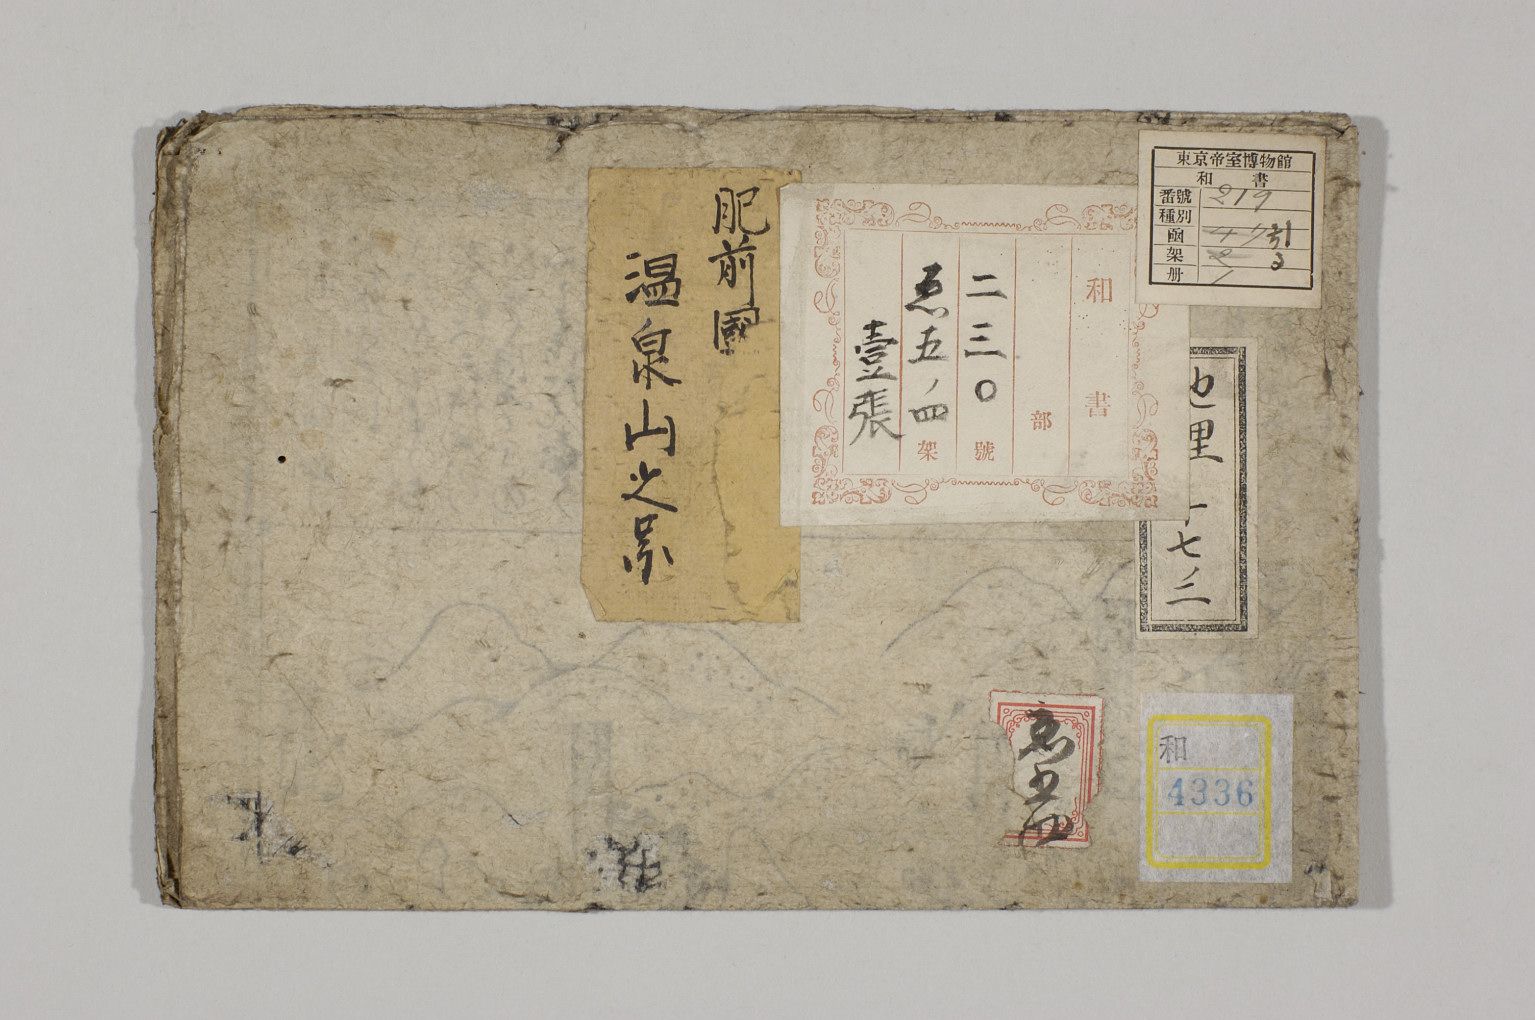 東京帝室博物館
和書
番號 219
種別
函 47 引
架 2 3
册 1
和書
部
二三〇號
恵五ノ四架
壹張
肥前國
温泉山之景
地理
十七ノ二
恵五四
和
4336